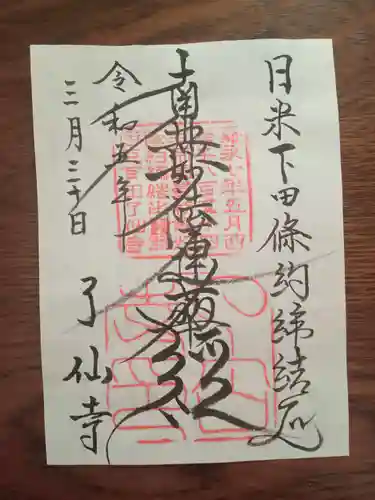 日米下田條約締結処
南無妙法蓮華経
令和五年
三月三十日
了仙寺